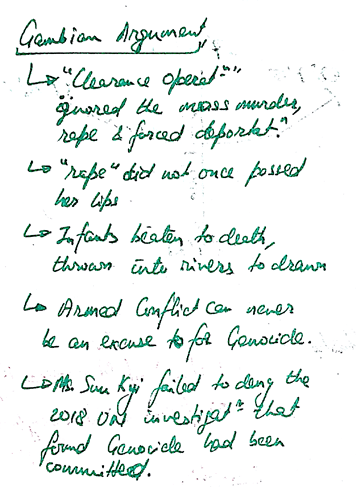 Gambian Argument
↳ "Clearance operatⁿ"
ignored the mass murder,
rape & forced deportatⁿ.
↳ "rape" did not once passed
her lips
↳ Infants beaten to death,
thrown into rivers to drown
↳ Armed Conflict can never
be an excuse to for Genocide.
↳ Ms. Suu Kyi failed to deny the
2018 UN investigatⁿ that
found Genocide had been
committed.